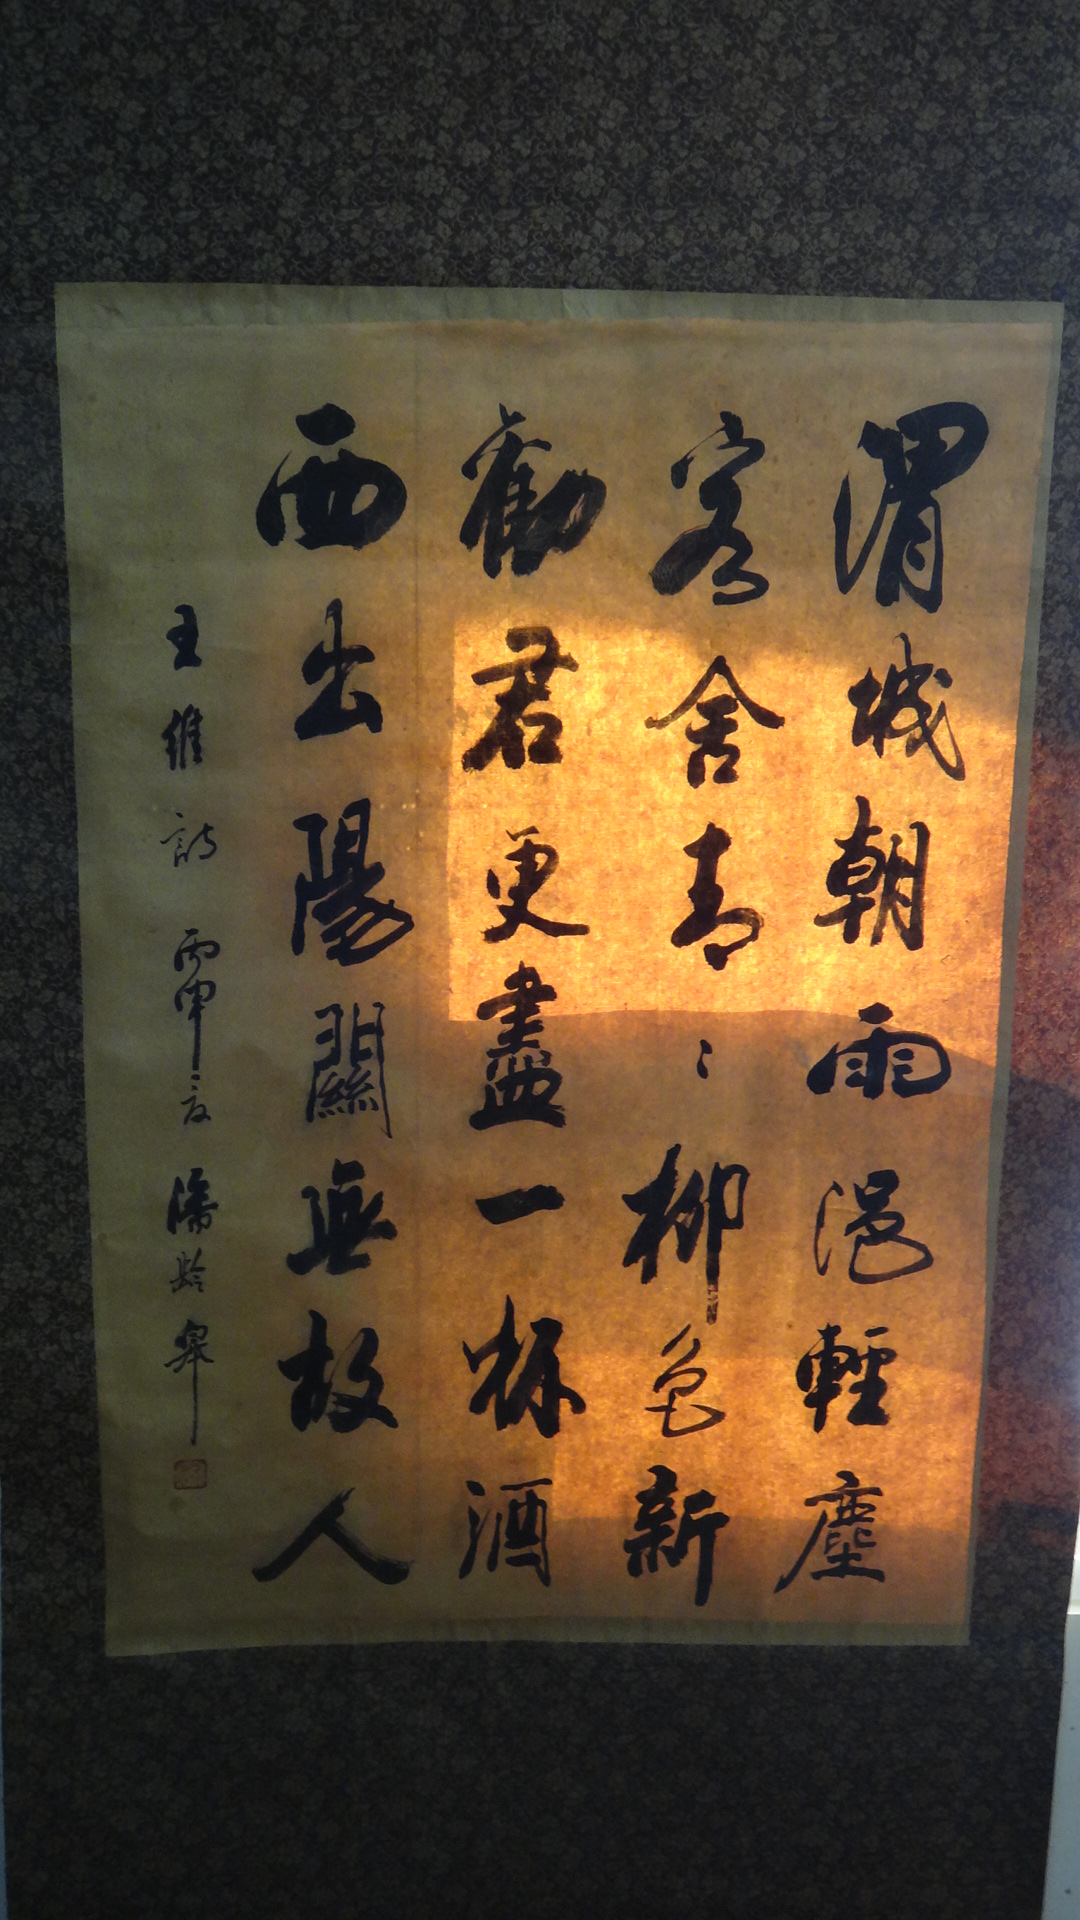 渭城朝雨浥輕塵
客舍青〻柳色新
勸君更盡一杯酒
西出陽關無故人
王維詩 丙申夏 潘齡皋